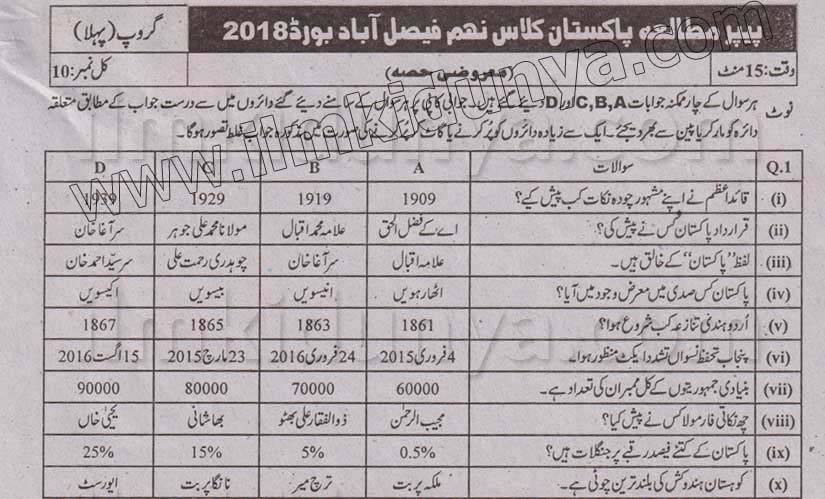 پیپر مطالعہ پاکستان کلاس نہم فیصل آباد بورڈ 2018 گروپ (پہلا)
وقت: 15 منٹ (معروضی حصہ) کل نمبر: 10
نوٹ ہر سوال کے چار ممکنہ جوابات A،B،C اور D دیئے گئے ہیں۔ جوابی کاپی پر ہر سوال کے سامنے دیئے گئے دائروں میں سے درست جواب کے مطابق متعلقہ
دائرہ کو مارکر یا پین سے بھر دیجئے۔ ایک سے زیادہ دائروں کو پُر کرنے یا کاٹ کر پُر کرنے کی صورت میں مذکورہ جواب غلط تصور ہوگا۔
Q.1 سوالات A B C D
(i) قائداعظم نے اپنے مشہور چودہ نکات کب پیش کیے؟ 1909 1919 1929 1939
(ii) قرارداد پاکستان کس نے پیش کی؟ اے کے فضل الحق علامہ محمد اقبال مولانا محمد علی جوہر سر آغا خان
(iii) لفظ "پاکستان" کے خالق ہیں۔ علامہ اقبال سر آغا خان چوہدری رحمت علی سر سید احمد خان
(iv) پاکستان کس صدی میں معرض وجود میں آیا؟ اٹھارہویں انیسویں بیسویں اکیسویں
(v) اُردو ہندی تنازعہ کب شروع ہوا؟ 1861 1863 1865 1867
(vi) پنجاب تحفظ نسواں تشدد ایکٹ منظور ہوا۔ 4 فروری 2015 24 فروری 2016 23 مارچ 2015 15 اگست 2016
(vii) بنیادی جمہوریتوں کے کل ممبران کی تعداد ہے۔ 60000 70000 80000 90000
(viii) چھ نکاتی فارمولا کس نے پیش کیا؟ مجیب الرحمٰن ذوالفقار علی بھٹو بھاشانی یحییٰ خاں
(ix) پاکستان کے کتنے فیصد رقبے پر جنگلات ہیں؟ 0.5% 5% 15% 25%
(x) کوہستان ہندوکش کی بلند ترین چوٹی ہے۔ ملکہ پربت ترچ میر نانگا پربت ایورسٹ
www.ilmkidunya.com
ilmkidunya.com
ilmkidunya.com